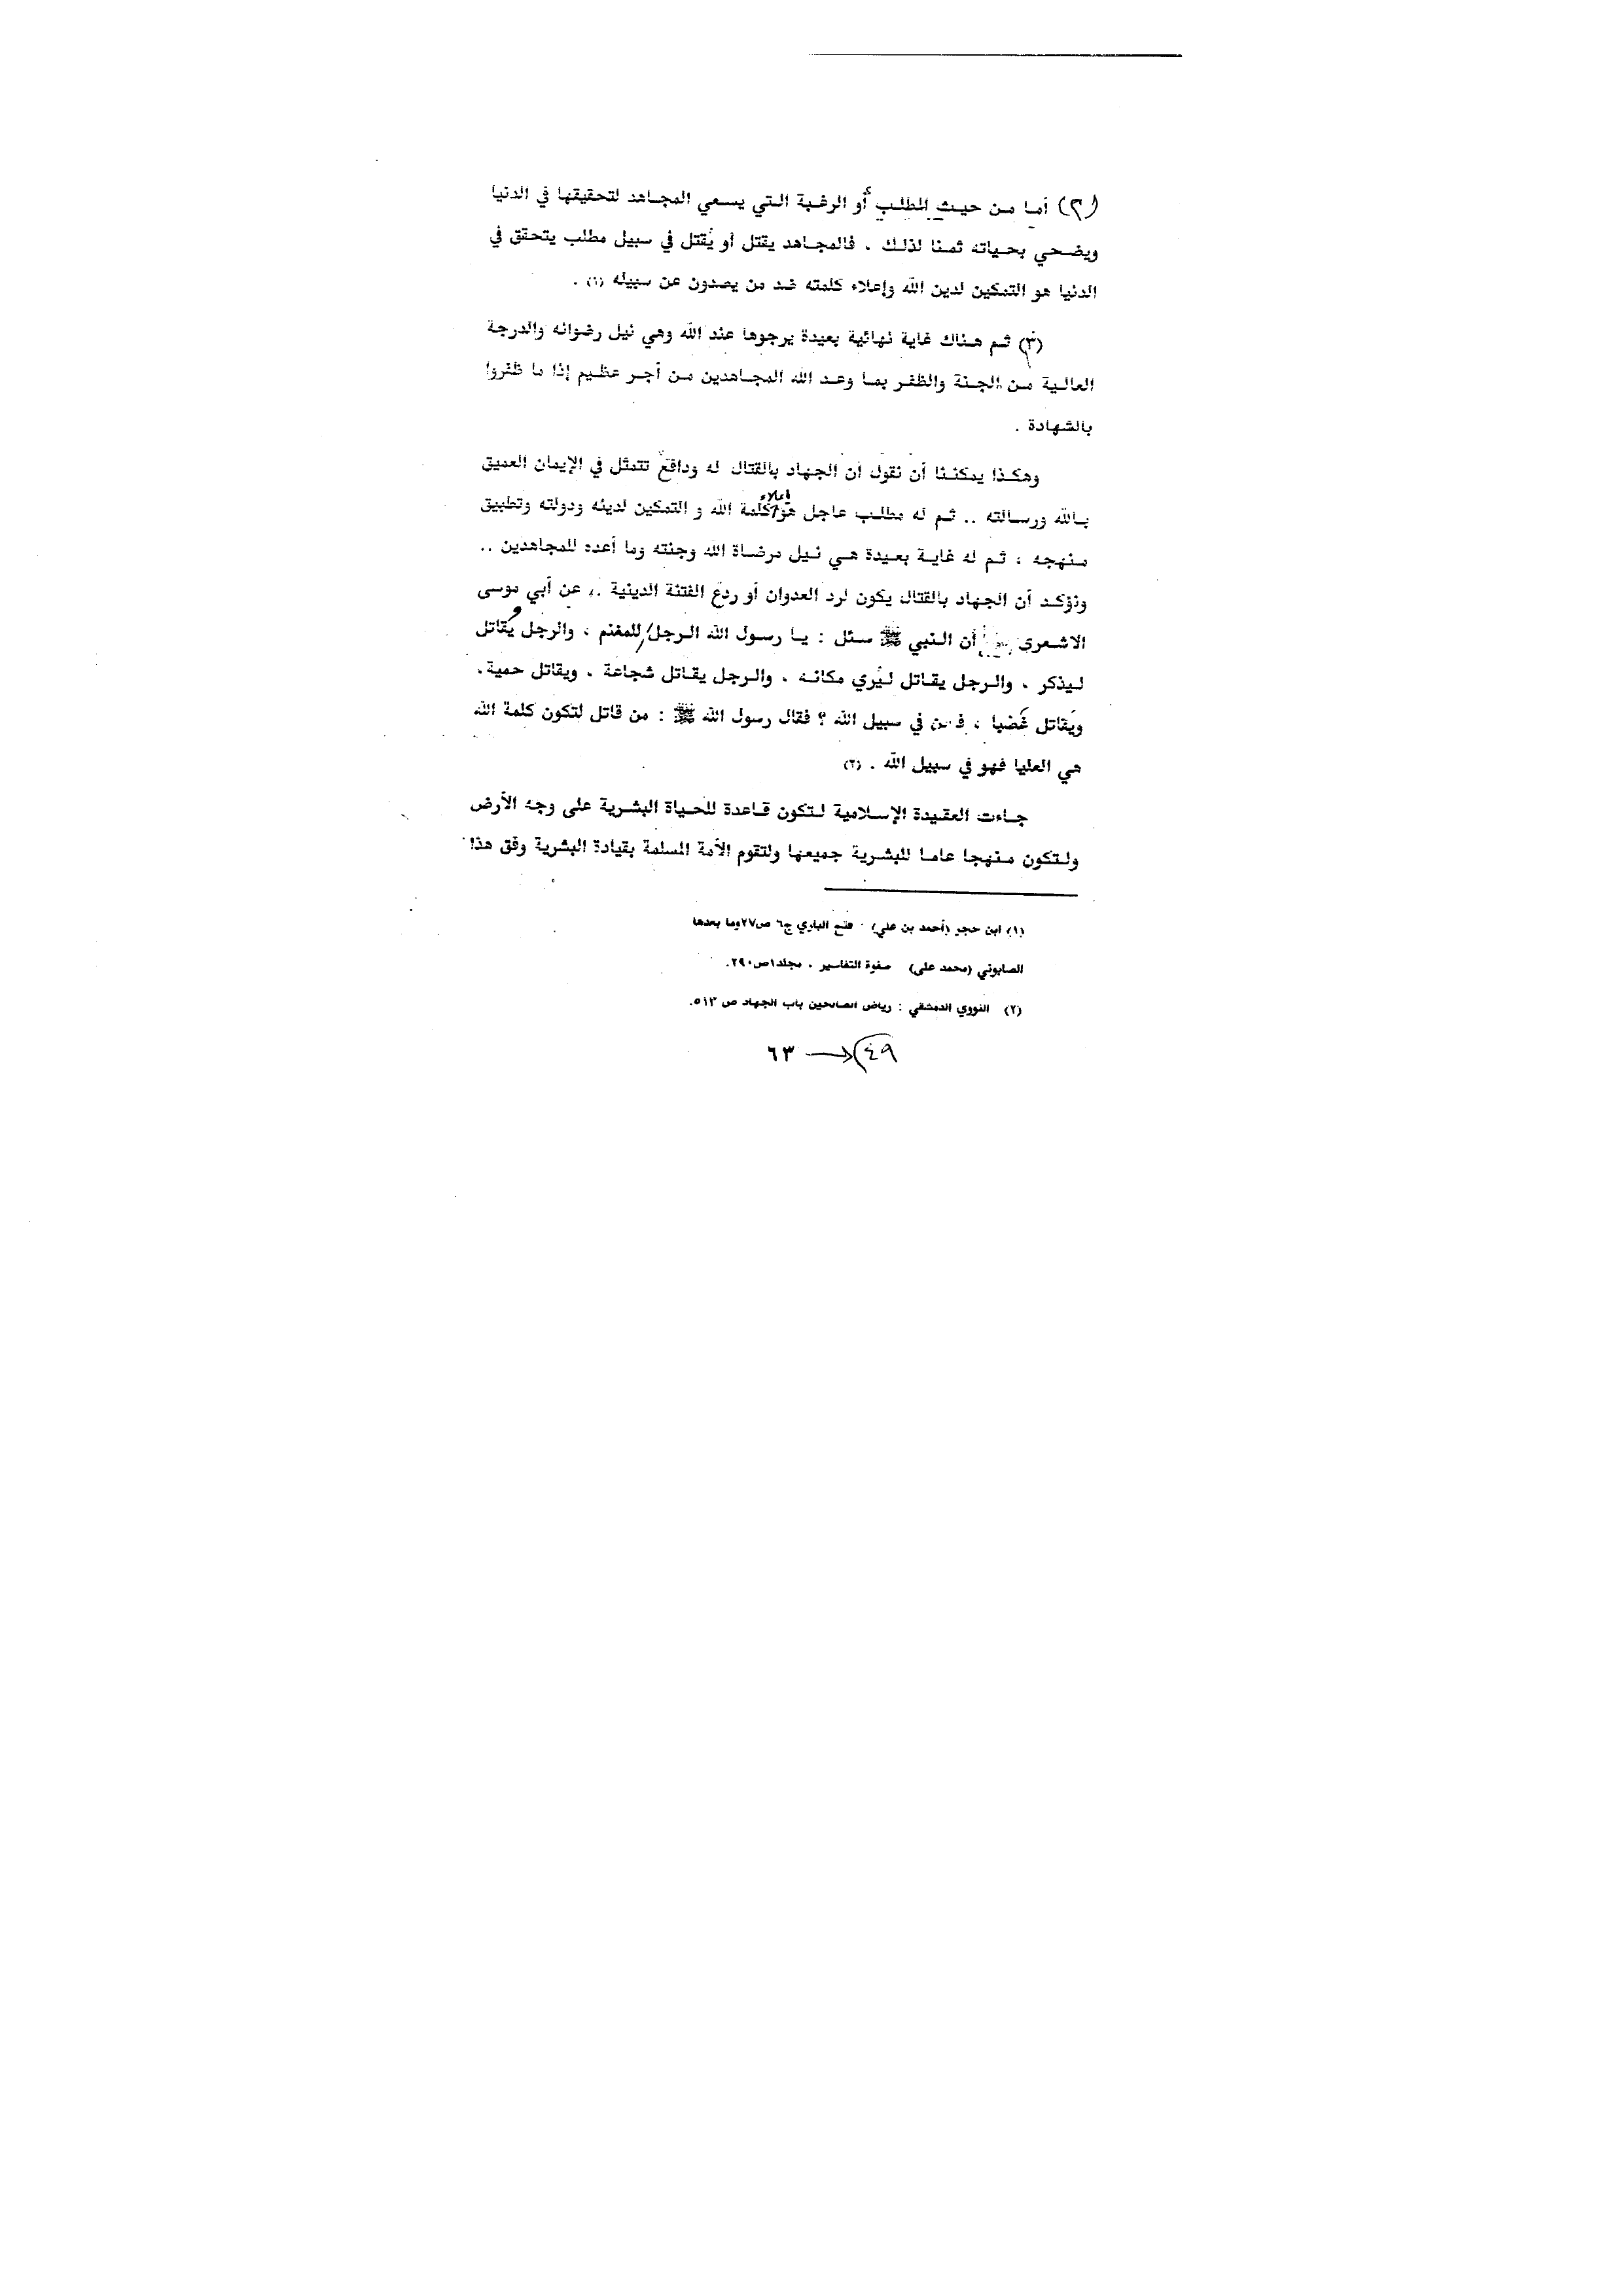 (٢) أما من حيث المطلب أو الرغبة التي يسعي المجاهد لتحقيقها في الدنيا
ويضحي بحياته ثمنا لذلك . فالمجاهد يقتل أو يُقتل في سبيل مطلب يتحقق في
الدنيا هو التمكين لدين الله وإعلاء كلمته ضد من يصدون عن سبيله (١) .
(٣) ثم هناك غاية نهائية بعيدة يرجوها عند الله وهي نيل رضوانه والدرجة
العالية من الجنة والظفر بما وعد الله المجاهدين من أجر عظيم إذا ما ظفروا
بالشهادة .
وهكذا يمكننا أن نقول أن الجهاد بالقتال له ودافع تتمثل في الإيمان العميق
بالله ورسالته .. ثم له مطلب عاجل هو إعلاء كلمة الله و التمكين لدينه ودولته وتطبيق
منهجه ، ثم له غاية بعيدة هي نيل مرضاة الله وجنته وما أعده للمجاهدين ..
ونؤكد أن الجهاد بالقتال يكون لرد العدوان أو ردع الفتنة الدينية .. عن أبي موسى
الاشعرى أن النبي ﷺ سئل : يا رسول الله الرجل للمغنم ، والرجل يُقاتل
ليذكر ، والرجل يقاتل ليُري مكانه ، والرجل يقاتل شجاعة ، ويقاتل حمية ،
ويُقاتل غَضبا ، فمن في سبيل الله ؟ فقال رسول الله ﷺ : من قاتل لتكون كلمة الله
هي العليا فهو في سبيل الله . (٢)
جاءت العقيدة الإسلامية لتكون قاعدة للحياة البشرية على وجه الأرض
ولتكون منهجا عاما للبشرية جميعها ولتقوم الأمة المسلمة بقيادة البشرية وفق هذا
(١) ابن حجر (أحمد بن علي) . فتح الباري ج٦ ص٢٧وما بعدها
الصابوني (محمد على) صفوة التفاسير . مجلد١ص٢٩٠.
(٢) النووي الدمشقي : رياض الصالحين باب الجهاد ص ٥١٣.
٤٩ ← ٦٣